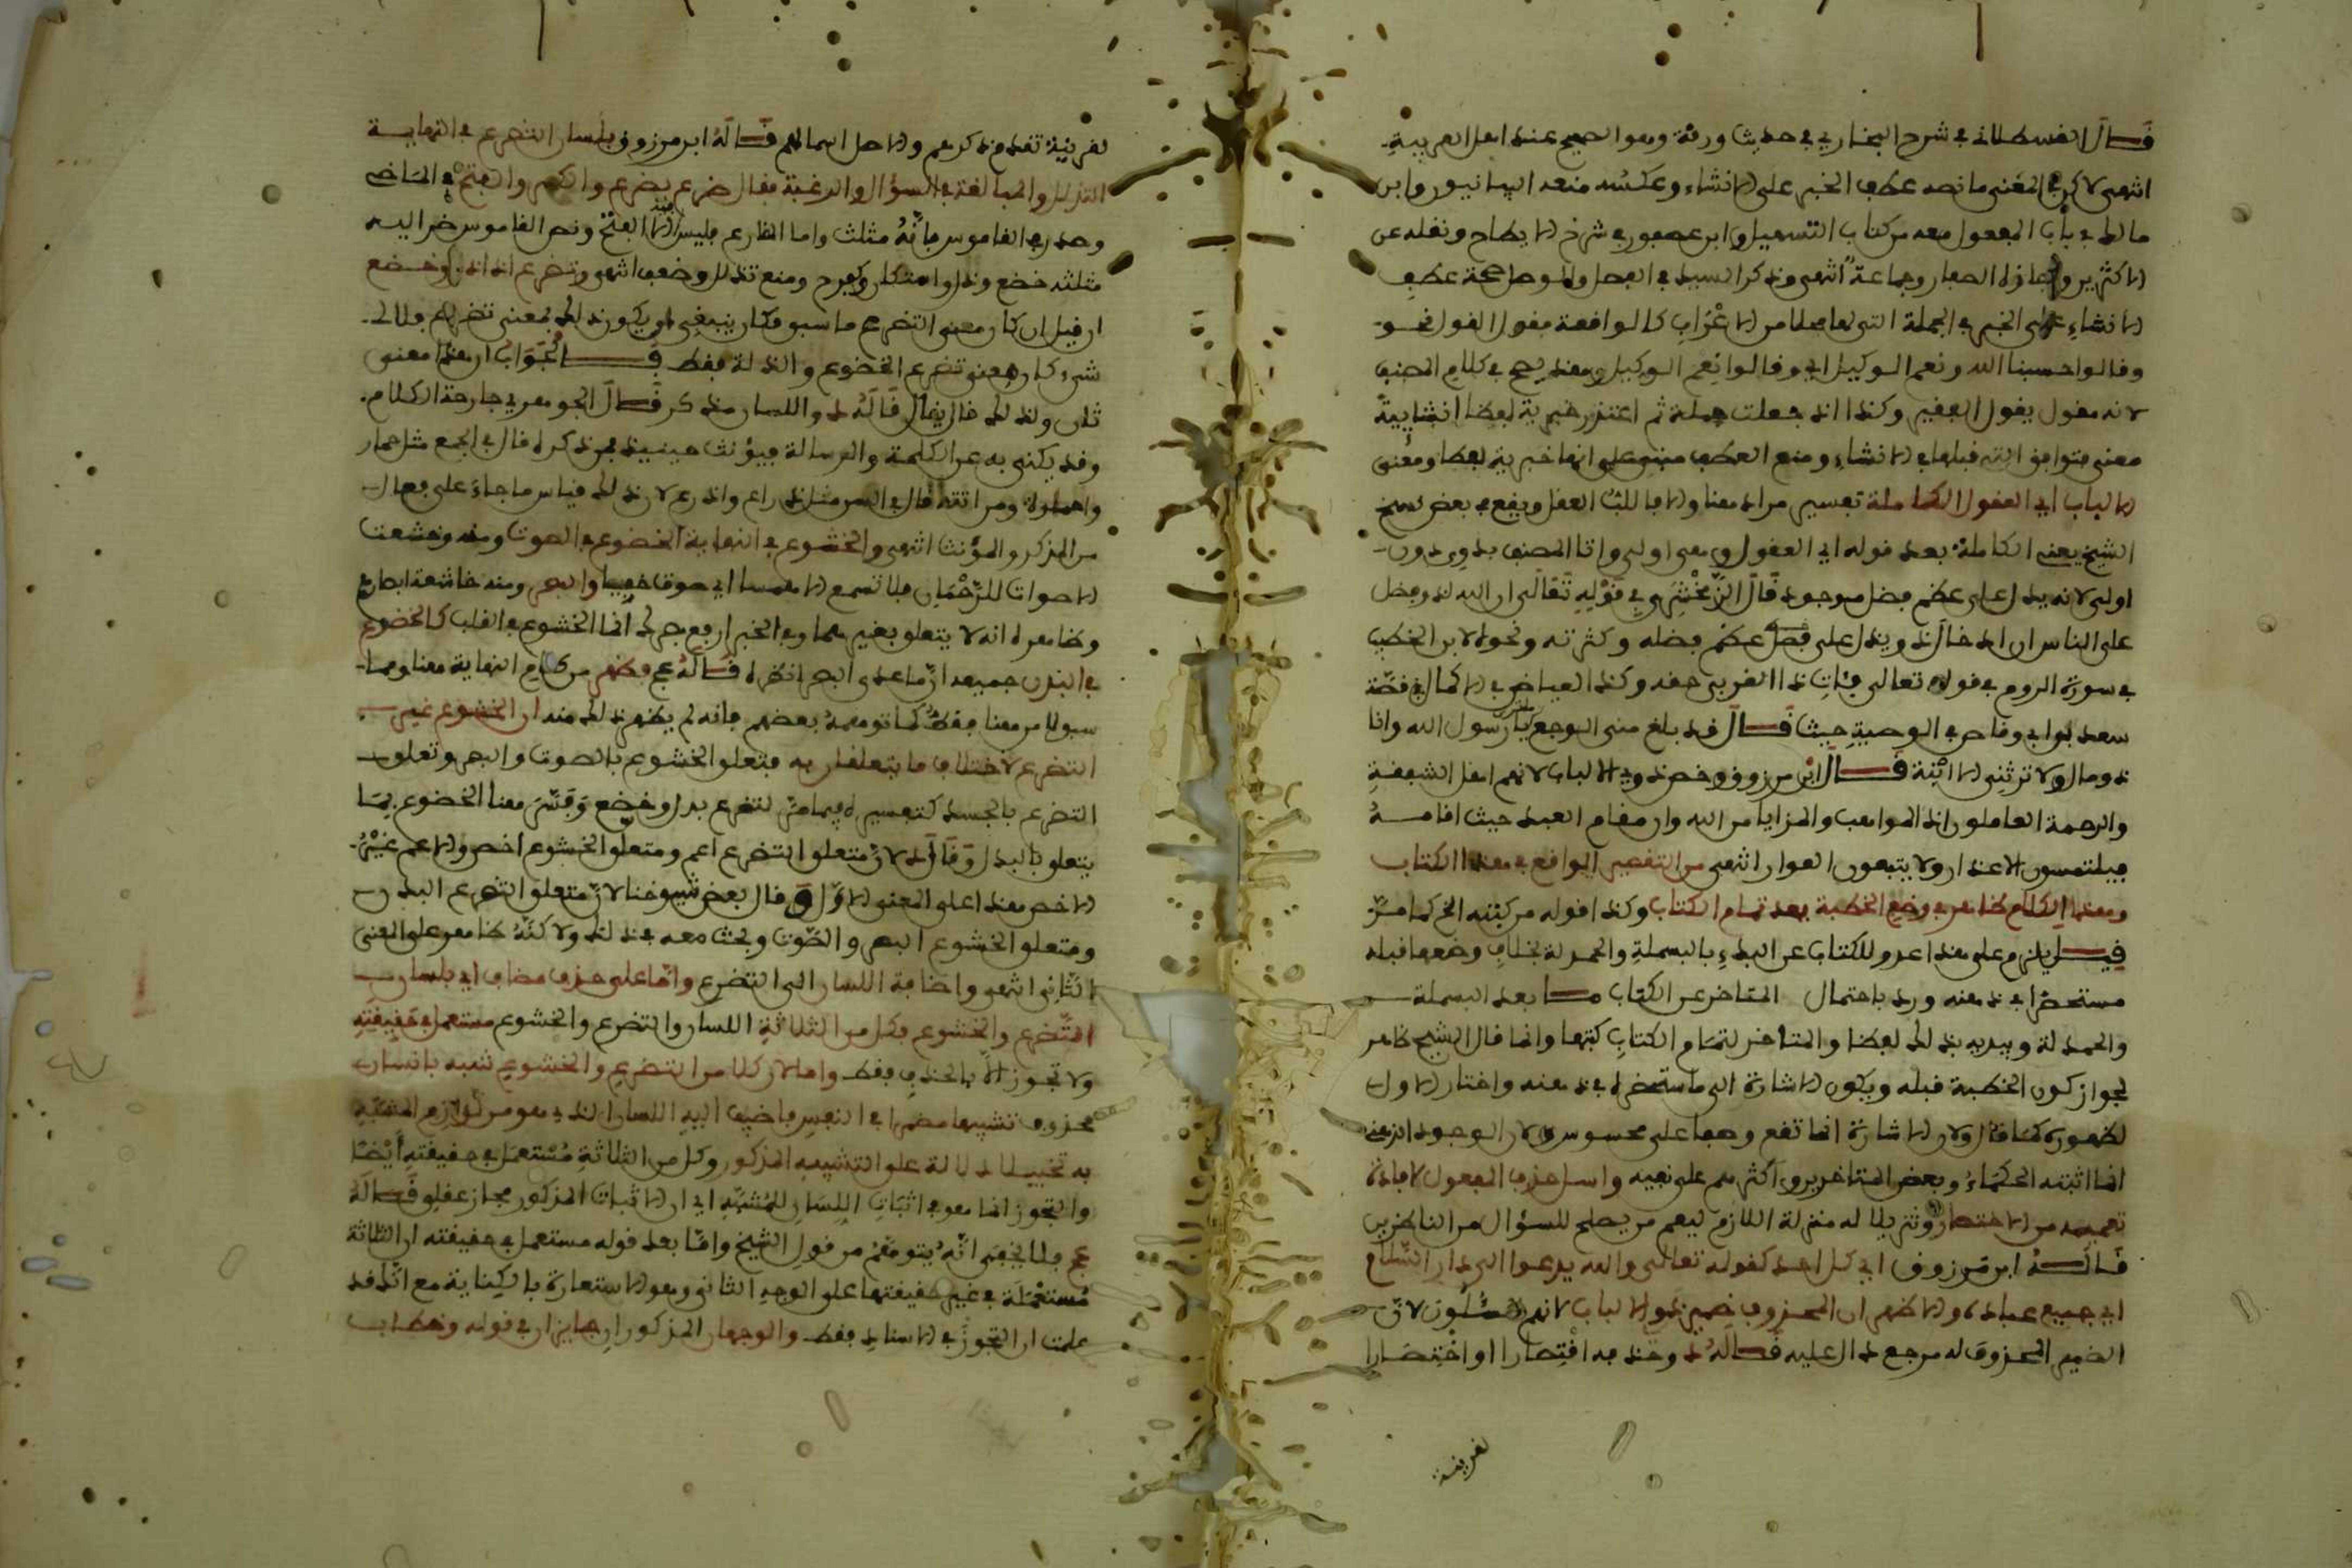 قال القسطلاني في شرح البخاري في حديث ورقة وهو الصحيح عند اهل العربية
انتهى لاكن في المغنى ما نصه عطف الخبر على الانشاء وعكسه منعه البيانيون وابن
مالك في باب المفعول معه من كتاب التسهيل وابن عصفور في شرح الايضاح ونقله عن
الاكثرين واجازه الصفار وجماعة انتهى وذكر السيد في الفصل والوصل صحة عطف
الانشاء على الخبر في الجملة التي لها محل من الاعراب كالواقعة مقول القول نحو
وقالوا حسبنا الله ونعم الوكيل اي وقالوا نعم الوكيل وهذا يصح في كلام المصنف
لانه مقول يقول الفقير وكذا اذا جعلت جملة ثم اعتذر خبرية لفظا انشايية
معنى فتوافق التي قبلها في الانشاء ومنع العطف مبني على انها خبرية لفظا ومعنى
الالباب اي العقول الكاملة تفسير مراد هنا والا فاللب العقل ويقع في بعض نسخ
الشيخ يعني الكاملة بعد قوله اي العقول وهي اولى واتا المصنف بذوي دون
اولى لانه يدل على عظم فضل موجود قال الزمخشري في قوله تعالى ان الله لذو فضل
على الناس ان ادخال ذو يدل على فضل عظم فضله وكثرته ونحوه لابن الخطيب
في سورة الروم في قوله تعالى فئات ذا القربى حقه وكذا لعياض في الاكمال في قصة
سعد بن ابي وقاص في الوصية حيث قال قد بلغ مني الوجع يا رسول الله وانا
ذو مال ولا ترثني الا ابنة قال ابن مرزوق وخص ذوي الالباب لانهم اهل الشفقة
والرحمة العاملون ان المواهب والمزايا من الله وان مقام العبد حيث اقامه
فيلتمسون الاعذار ولا يتبعون العوار انتهى من التقصير الواقع في هذا الكتاب
وهذا الكلام ظاهر في وضع الخطبة بعد تمام الكتاب وكذا قوله من كتبه الخ كما مر
قيل يلزم على هذا عرو للكتاب عن البدء بالبسملة والحمدلة بخلاف وضعها قبله
مستحضرا في ذهنه ورد باحتمال المتاخر عن الكتاب ما بعد البسملة
والحمدلة وبيديه بذلك لفظا والمتاخر لتمام الكتاب كتبها وانما قال الشيخ ظاهر
لجواز كون الخطبة قبله ويكون الاشارة الى ما استحضره في ذهنه واختار الاول
لظهوره كما قال ولان الاشارة انما تقع وضعا على محسوس ولان الوجود الذهني
انما اثبته الحكماء وبعض المتاخرين واكثرهم على نفيه واسل حذف المفعول لافادة
تعميمه من الاختصار وتنزيلا له منزلة اللازم ليعم من يصلح للسؤال من الناظرين
قاله ابن مرزوق اي كل احد كقوله تعالى والله يدعوا الى دار السلام
اي جميع عباده والاظهر ان المحذوف ضمير ذوو الالباب لانهم المسئولون لان
الضمير المحذوف له مرجع دال عليه قاله د وحذفه اقتصارا او اختصارا
لقرينة
لقرينة تقدم ذكرهم والاصل اسالهم قاله ابن مرزوق بلسان التضرع في النهاية
التذلل والمبالغة في السؤال والرغبة يقال ضرع يضرع والكسر والفتح في الماضي
وصدر في القاموس بانه مثلث واما الضارع فليس منه الا الفتح ونص القاموس ضرع اليه
مثلثه خضع وذل واستكان وكفرح ومنع تذلل وضعف انتهى وتضرع اذا ذل وخضع
ان قيل ان كان معنى التضرع ما سبق فكان ينبغي ان يكون ذلك لمعنى تضرع ولاي
شيء كان معنى تضرع الخضوع والذلة فقط فالجواب ان هذا معنى
ثان ولذلك قال يقال قاله د واللسان مذكر قال الجوهري جارحة الكلام
وقد يكنى به عن الكلمة والرسالة فيؤنث حينيذ فمن ذكره قال في الجمع مثل حمار
واحمرة ومن انثه قال السن مثل ذراع واذرع لان ذلك قياس ما جاء على فعال
من المذكر والمؤنث انتهى والخشوع في النهاية الخضوع في الصوت ومنه وخشعت
الاصوات للرحمان فلا تسمع الا همسا اي صوتا خفيا والبصر ومنه خاشعة ابصارهم
وظاهره انه لا يتعلق بغيرهما وفي الخبر انما الخشوع في القلب كالخضوع
في البدن جميعه ازما عدى البصر انظره قاله عج وظهر من كلام النهاية هنا وما
سبق لا من هنا فقط كما توهمه بعضهم فانه لم يظهر ذلك منه ان الخشوع غير
التضرع لاختلاف ما يتعلقان به فتعلق الخشوع بالصوت والبصر وتعلق
التضرع بالجسد كتفسيره فيما مر لتضرع بذل وخضع وفسر هنا الخضوع بما
يتعلق بالبدن وقال د لان متعلق التضرع اعم ومتعلق الخشوع اخص والاعم غير
الاخص هذا على المعنى الاول وقال بعض شيوخنا لان متعلق التضرع البدن
ومتعلق الخشوع البصر والصوت وبحث معه في ذلك ولاكنه ظاهر على المعنى
الثاني انتهى واضافة اللسان الى التضرع واما على حذف مضاف اي بلسان ذي
التضرع والخشوع فكل من الثلاثة اللسان والتضرع والخشوع مستعمل في حقيقته
ولا تجوز الا بالحذف فقط واما لان كلا من التضرع والخشوع شبه بانسان
محذوف تشبيها مضمرا في النفس فاضيف اليه اللسان الذي هو من لوازم المشبه
به تخييلا دلالة على التشبيه المذكور وكل من الثلاثة مستعمل في حقيقته ايضا
والتجوز انما هو في اثبات اللسان للمشبه اي ان الاثبات المذكور مجاز عقلي قاله
عج ولا يخفى انه يتوهم من قول الشيخ وانما بعد قوله مستعمل في حقيقته ان الثلاثة
مستعملة في غير حقيقتها على الوجه الثاني وهو الاستعارة بالكناية مع انك قد
علمت ان التجوز في الاسناد فقط والوجهان المذكوران جايزان في قوله وخطاب